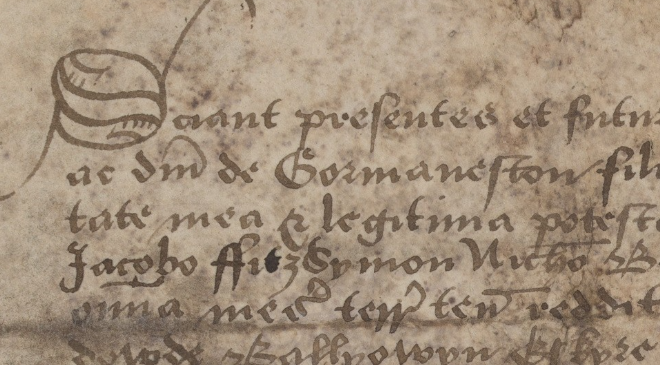 Sciant presentes et futur
ac dm̄ de Gormaneston fili
tate mea & legitima potest
Jacobo ffitzSymon Nicho B
om̄ia mes terr ten̄ reddit
dowde Ballyowyn